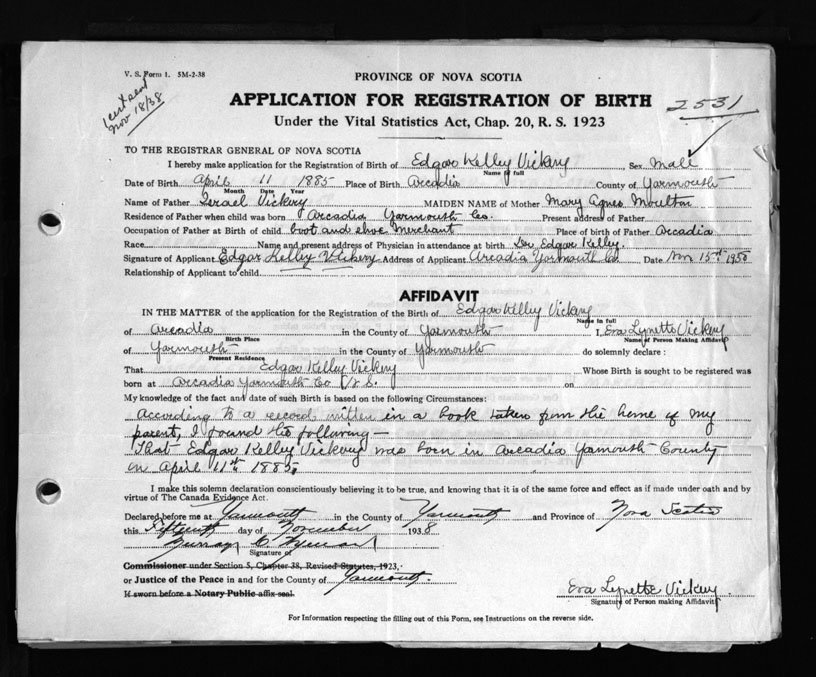 V. S. Form 1. 5M-2-38
PROVINCE OF NOVA SCOTIA
Nov 18/38
APPLICATION FOR REGISTRATION OF BIRTH
2531
Under the Vital Statistics Act, Chap. 20, R. S. 1923
TO THE REGISTRAR GENERAL OF NOVA SCOTIA
I hereby make application for the Registration of Birth of Edgar Kelley Vickery Sex Male
Name in full
Date of Birth April 11 1885 Place of Birth Arcadia County of Yarmouth
Month Date Year
Name of Father Israel Vickery MAIDEN NAME of Mother Mary Agnes Moulton
Residence of Father when child was born Arcadia Yarmouth Co. Present address of Father
Occupation of Father at Birth of child boot and shoe Merchant Place of birth of Father Arcadia
Race Name and present address of Physician in attendance at birth Dr. Edgar Kelley.
Signature of Applicant Edgar Kelley Vickery Address of Applicant Arcadia Yarmouth Co Date Nov 15th
Relationship of Applicant to child
AFFIDAVIT
IN THE MATTER of the application for the Registration of the Birth of Edgar Kelley Vickery
Name in full
of Arcadia in the County of Yarmouth I, Eva Lynette Vickery
Birth Place Name of Person Making Affidavit
of Yarmouth in the County of Yarmouth do solemnly declare :
Present Residence
That Edgar Kelley Vickery Whose Birth is sought to be registered was
born at Arcadia Yarmouth Co N.S. on
My knowledge of the fact and date of such Birth is based on the following Circumstances:
According to a record written in a book taken from the home of my
parent, I found the following —
That Edgar Kelley Vickery was born in Arcadia Yarmouth County
on April 11th 1885
I make this solemn declaration conscientiously believing it to be true, and knowing that it is of the same force and effect as if made under oath and by
virtue of The Canada Evidence Act.
Declared before me at Yarmouth in the County of Yarmouth and Province of Nova Scotia
this Fifteenth day of November 1938
Murray C.
Signature of
Commissioner under Section 5, Chapter 38, Revised Statutes, 1923,
or Justice of the Peace in and for the County of Yarmouth.
If sworn before a Notary Public affix seal.
Eva Lynette Vickery
Signature of Person making Affidavit
For Information respecting the filling out of this Form, see Instructions on the reverse side.